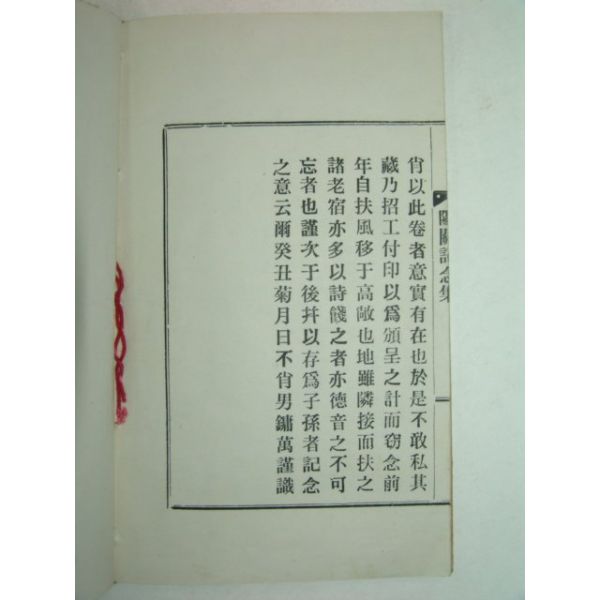 肯以此卷者意實有在也於是不敢私其
藏乃招工付印以爲頒呈之計而窃念前
年自扶風移于高敞也地雖隣接而扶之
諸老宿亦多以詩餞之者亦德音之不可
忘者也謹次于後幷以存爲子孫者記念
之意云爾癸丑菊月日不肖男鏞萬謹識
陽關記念集